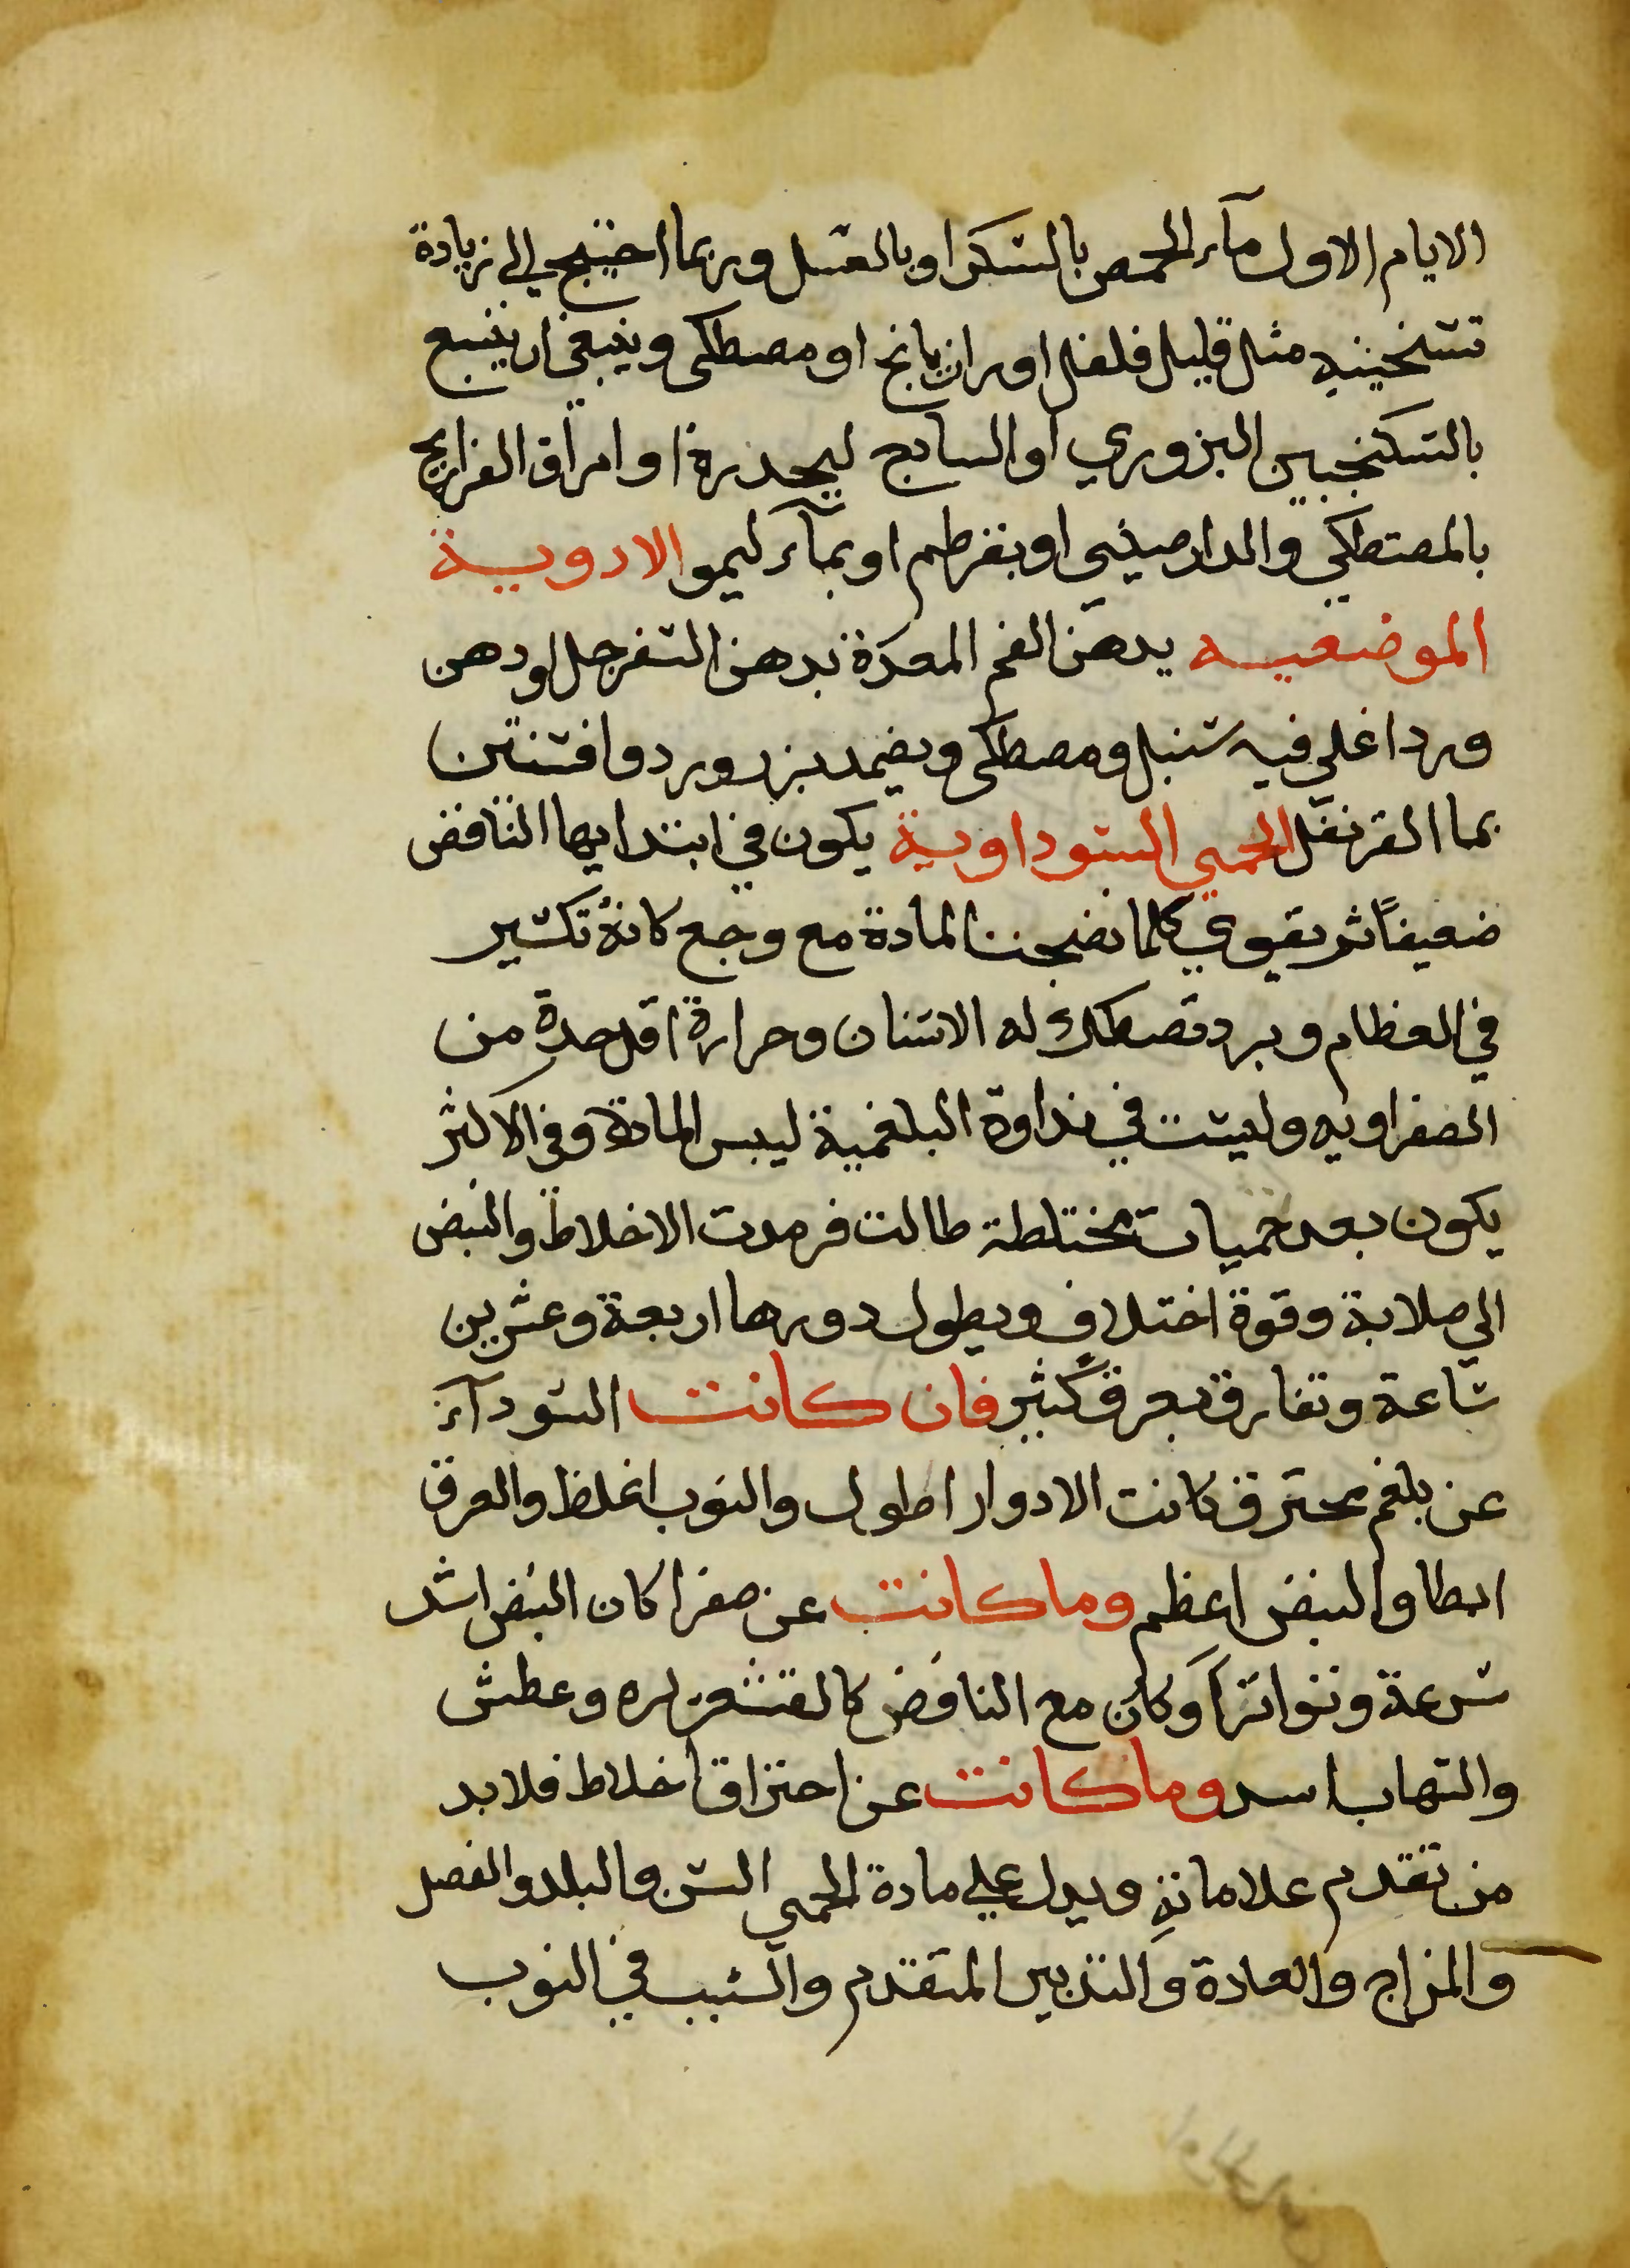 الايام الاول مآء الحمص بالسكر او بالعسل وربما احتيج الي زيادة
تسخينه مثل قليل فلفل او رازيانج او مصطكي وينبغي ان يتبع
بالسكنجبين البزوري او السادج ليحدره او امراق الفراريج
بالمصتطكي والدارصيني او بقرطم او بمآء ليمو الادوية
الموضعيه يدهن الفم المعدة بدهن السفرجل او دهن
ورد اغلي فيه سنبل ومصطكي ويضمد بزر ورد وافسنتين
بما القرنفل الحمي السوداوية يكون في ابتدايها النافض
ضعيفاً ثم يقوي كلما نضجت المادة مع وجع كانه تكسير
في العظام وبرد تصطك له الاسنان وحرارة اقل حدة من
الصفراويه وليست في نداوة البلغمية ليبس المادة وفي الاكثر
يكون بعد حميات مختلطة طالت فرمدت الاخلاط والنبض
الي صلابة وقوة اختلاف ويطول دورها اربعة وعشرين
ساعة وتفارق بعرق كثير فان كانت السودآء
عن بلغم محترق كانت الادوار اطول والنوب اغلظ والعرق
ابطا والنبض اعظم وما كانت عن صفرا كان النبض اشد
سرعة وتواتراً وكان مع النافض كالقشعريره وعطش
والتهاب اسد وما كانت عن احتراق اخلاط فلا بد
من تقدم علاماته ويدل علي مادة الحمي السن والبلد والفصل
والمزاج والعادة والتدبير المتقدم والسبب في النوب